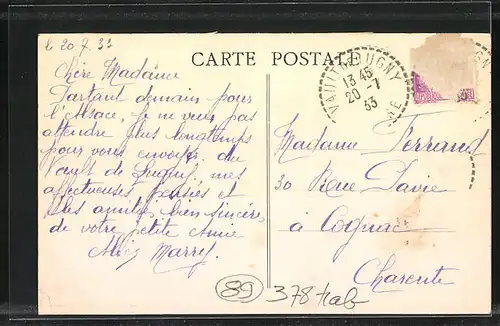 le 20.7.33
CARTE POSTALE
Chère Madame
Partant demain pour
l'Alsace, je ne veux pas
attendre plus longtemps
pour vous envoyer, du
Vault de Lugny, mes
affectueuses pensées et
les amitiés bien sincères
de votre petite Amie
VAULT-DE-LUGNY
13 45
20 - 7
33
Madame Ferrand
30 Rue Davie
à Cognac
Charente
89
378 hab